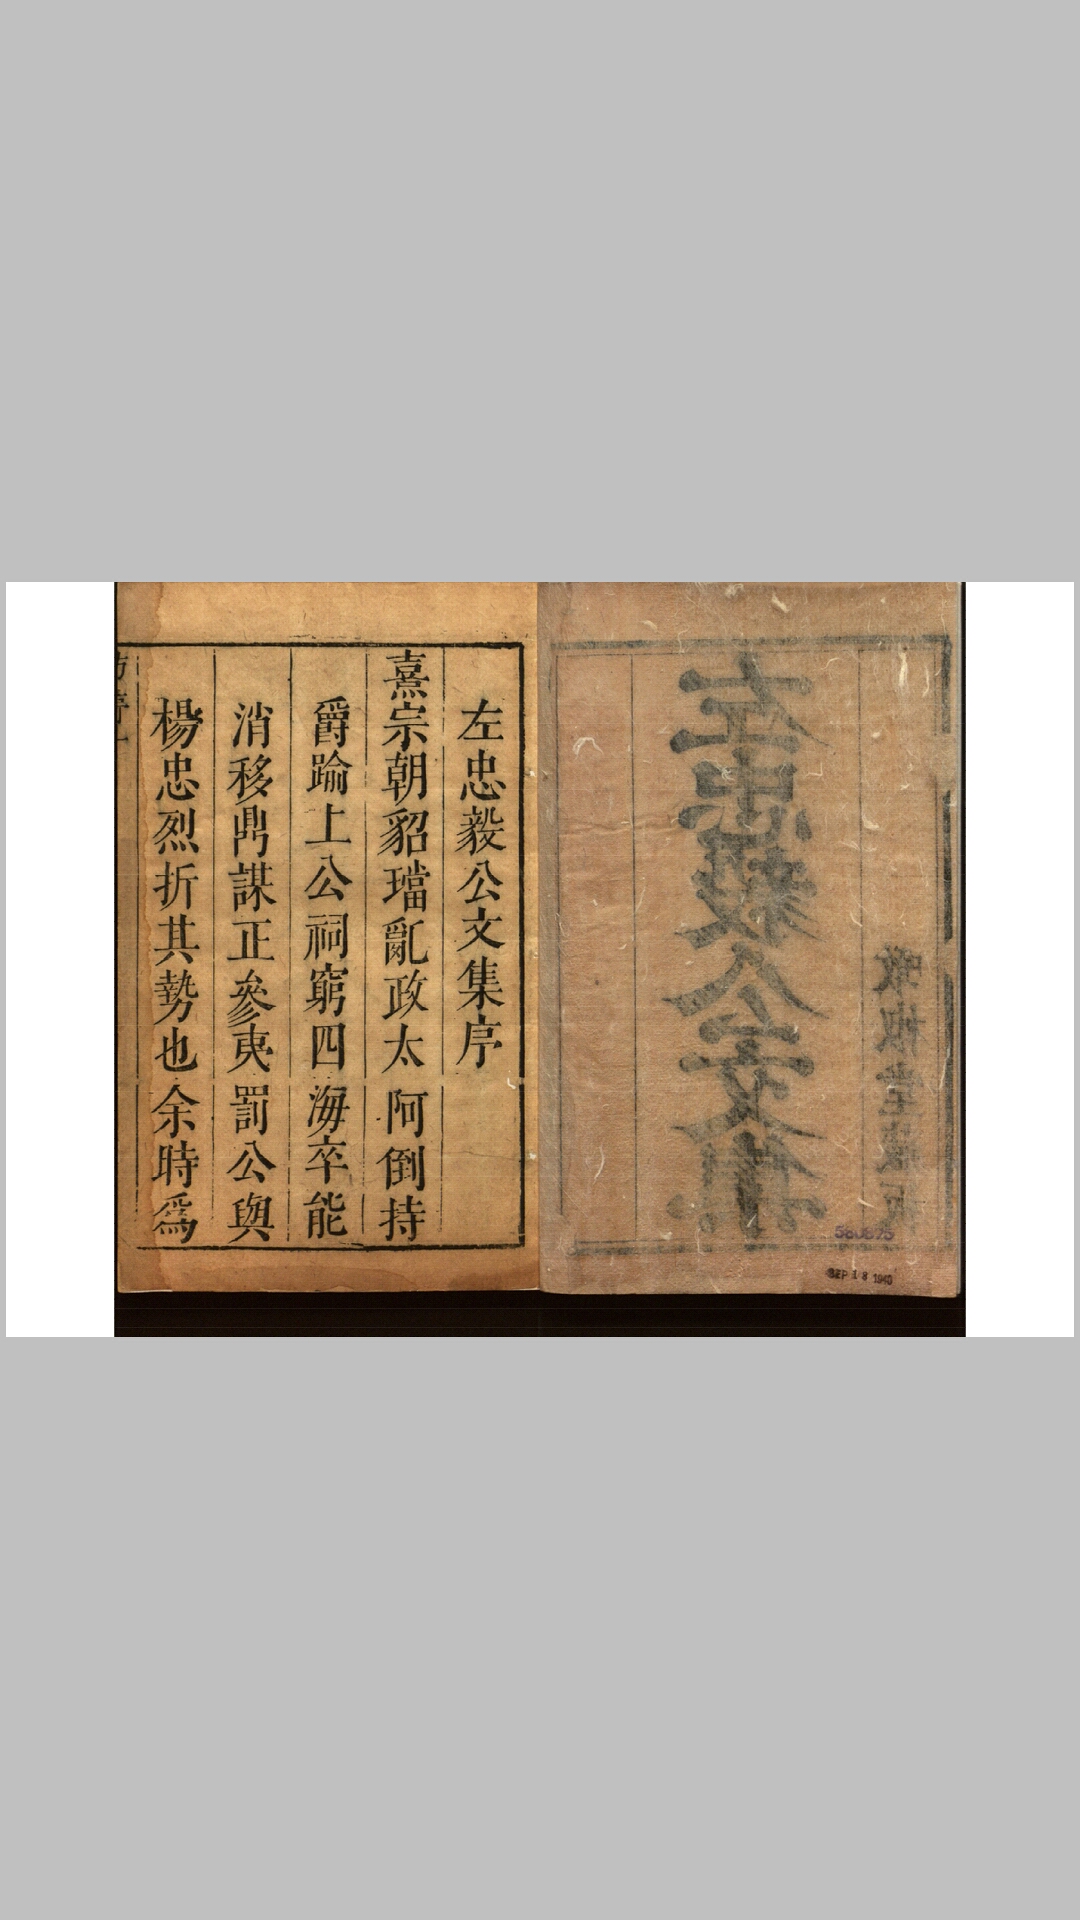 啖椒堂藏板
左忠毅公文集
SEP 18 1940
左忠毅公文集序
熹宗朝貂璫亂政太阿倒持
爵踰上公祠窮四海卒能
消移鼎謀正參夷罰公與
楊忠烈折其勢也余時爲